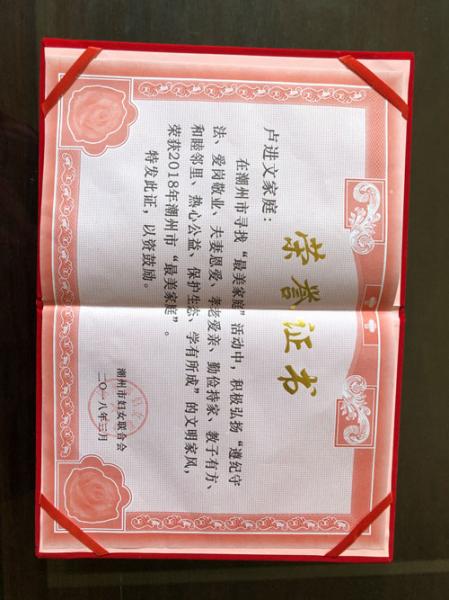 荣誉证书
卢进文家庭：
在潮州市寻找“最美家庭”活动中，积极弘扬“遵纪守
法、爱岗敬业、夫妻恩爱、孝老爱亲、勤俭持家、教子有方、
和睦邻里、热心公益、保护生态、学有所成”的文明家风，
荣获2018年潮州市“最美家庭”。
特发此证，以资鼓励。
潮州市妇女联合会
二〇一八年三月